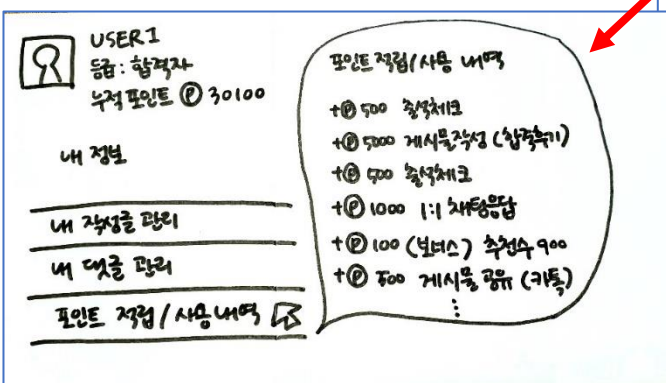 USER1
등급 : 합격자
누적 포인트 Ⓟ 30100
내 정보
내 작성글 관리
내 댓글 관리
포인트 적립 / 사용 내역
포인트 적립/사용 내역
+Ⓟ 500 출석체크
+Ⓟ 5000 게시물작성 (합격후기)
+Ⓟ 500 출석체크
+Ⓟ 1000 1:1 채팅응답
+Ⓟ 100 (보너스) 추천수 900
+Ⓟ 500 게시물 공유 (카톡)
⋮